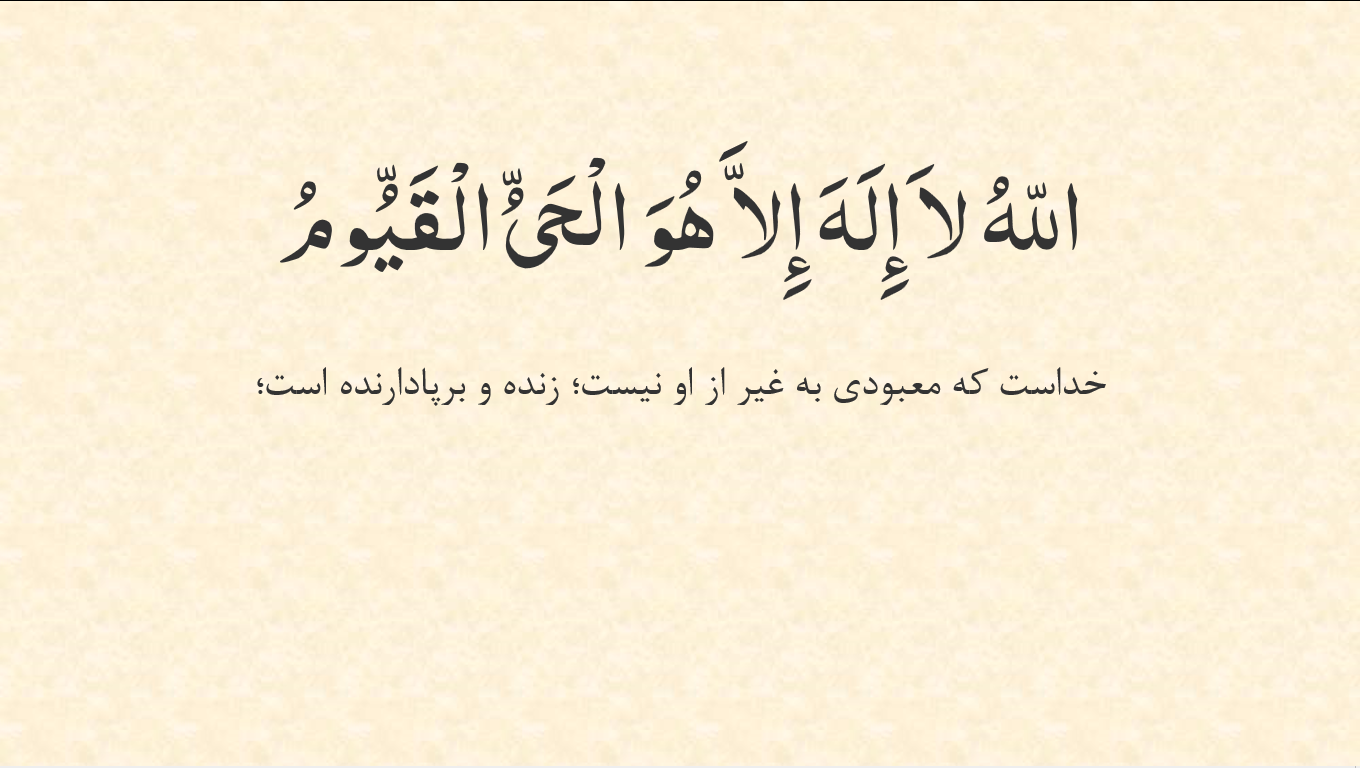 اللّهُ لاَ إِلَهَ إِلاَّ هُوَ الْحَيُّ الْقَيُّومُ
خداست که معبودی به غیر از او نیست؛ زنده و برپادارنده است؛